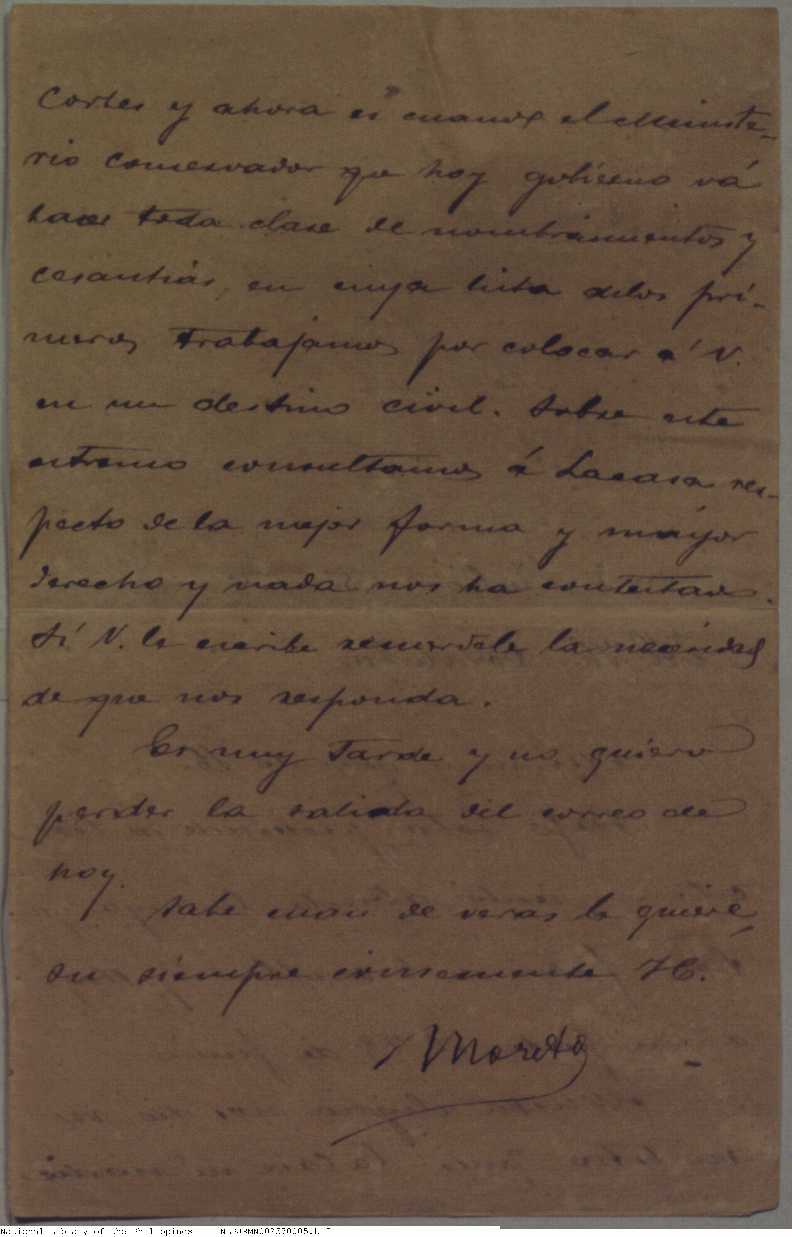 Cortes y ahora es cuando el Ministe-
rio conservador que hoy gobierno vá
hacer toda clase de nombramientos y
cesantias, en cuya lista delos pri-
meros trabajamos por colocar á V.
en un destino civil. Sobre este
estremo consultamos á Lacasa res-
pecto de la mejor forma y mayor
derecho y nada nos ha contestado.
Si V. le escribe recuerdele la necesidad
de que nos responda.
Es muy tarde y no quiero
perder la salida del correo de
hoy.
Sabe cuan de veras le quiere,
su siempre H.
Morets
National Library of the Philippines